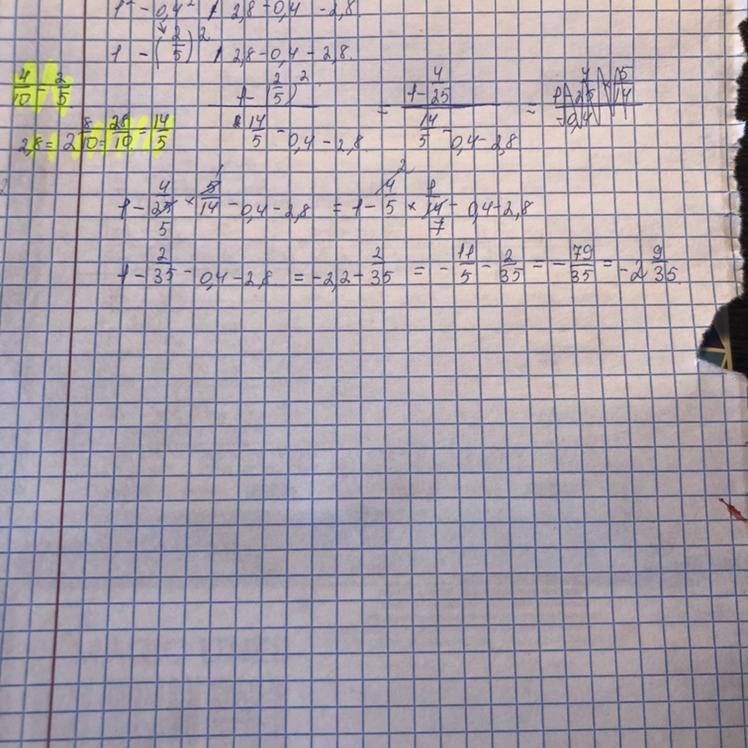 1² - 0,4² / 2,8 - 0,4 - 2,8
1 - (2/5)² / 2,8 - 0,4 - 2,8.
4/10 = 2/5
2,8 = 2 8/10 = 28/10 = 14/5
1 - (2/5)² / 14/5 - 0,4 - 2,8 = 1 - 4/25 / 14/5 - 0,4 - 2,8 =
1 - 4/25 × 5/14 - 0,4 - 2,8 = 1 - 4/5 × 1/14 - 0,4 - 2,8
1 - 2/35 - 0,4 - 2,8 = -2,2 - 2/35 = - 11/5 - 2/35 = - 79/35 = -2 9/35.